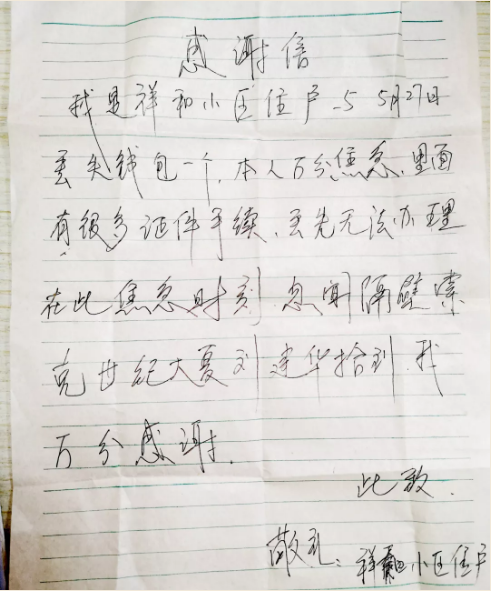 感谢信
我是祥和小区住户 5月27日
丢失钱包一个,本人万分焦急,里面
有很多证件手续,丢失无法办理
在此焦急时刻 忽闻隔壁索
克世纪大夏刘建华拾到.我
万分感谢.
此致.
敬礼: 祥和小区住户